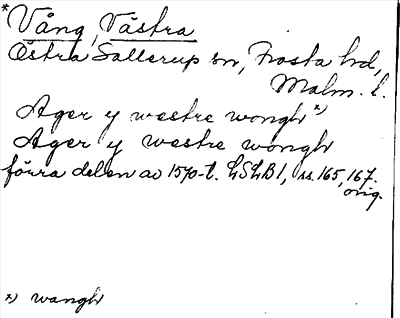 * Vång, Västra
Östra Sallerup sn, Frosta hd,
Malm. l.
Ager y westre wongh *)
Ager y westre wongh
förra delen av 1570-t. LSLB1, ss. 165, 167.
orig.
*) wangh